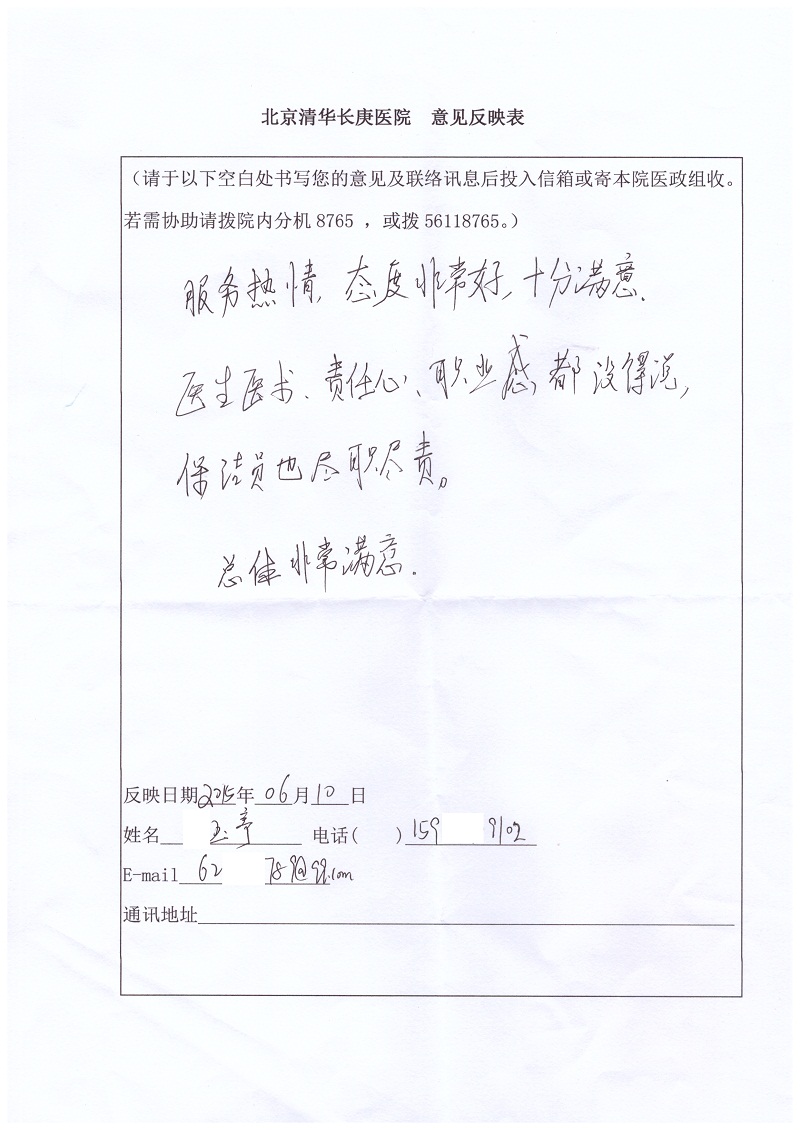 北京清华长庚医院 意见反映表
（请于以下空白处书写您的意见及联络讯息后投入信箱或寄本院医政组收。
若需协助请拨院内分机 8765 ，或拨 56118765。）
服务热情，态度非常好，十分满意．
医生医术、责任心、职业感都没得说，
保洁员也尽职尽责。
总体非常满意．
反映日期2015年06月10日
姓名 玉亭 电话( ) 159 9102
E-mail 62 789@qq.com
通讯地址